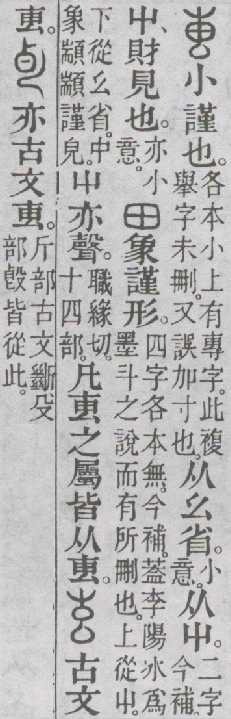 叀小謹也。各本小上有專字。此複舉字未刪。又誤加寸也。从幺省。小意。从屮。二字今補
屮、財見也。亦小意。田象謹形。四字各本無。今補。蓋李陽冰爲墨斗之說而有所刪也。上從屮。
下從幺省。中象顓顓謹皃。屮亦聲。職緣切。十四部。凡叀之屬皆从叀。古文
叀。亦古文叀。斤部古文斷殳部𣪘皆從此。